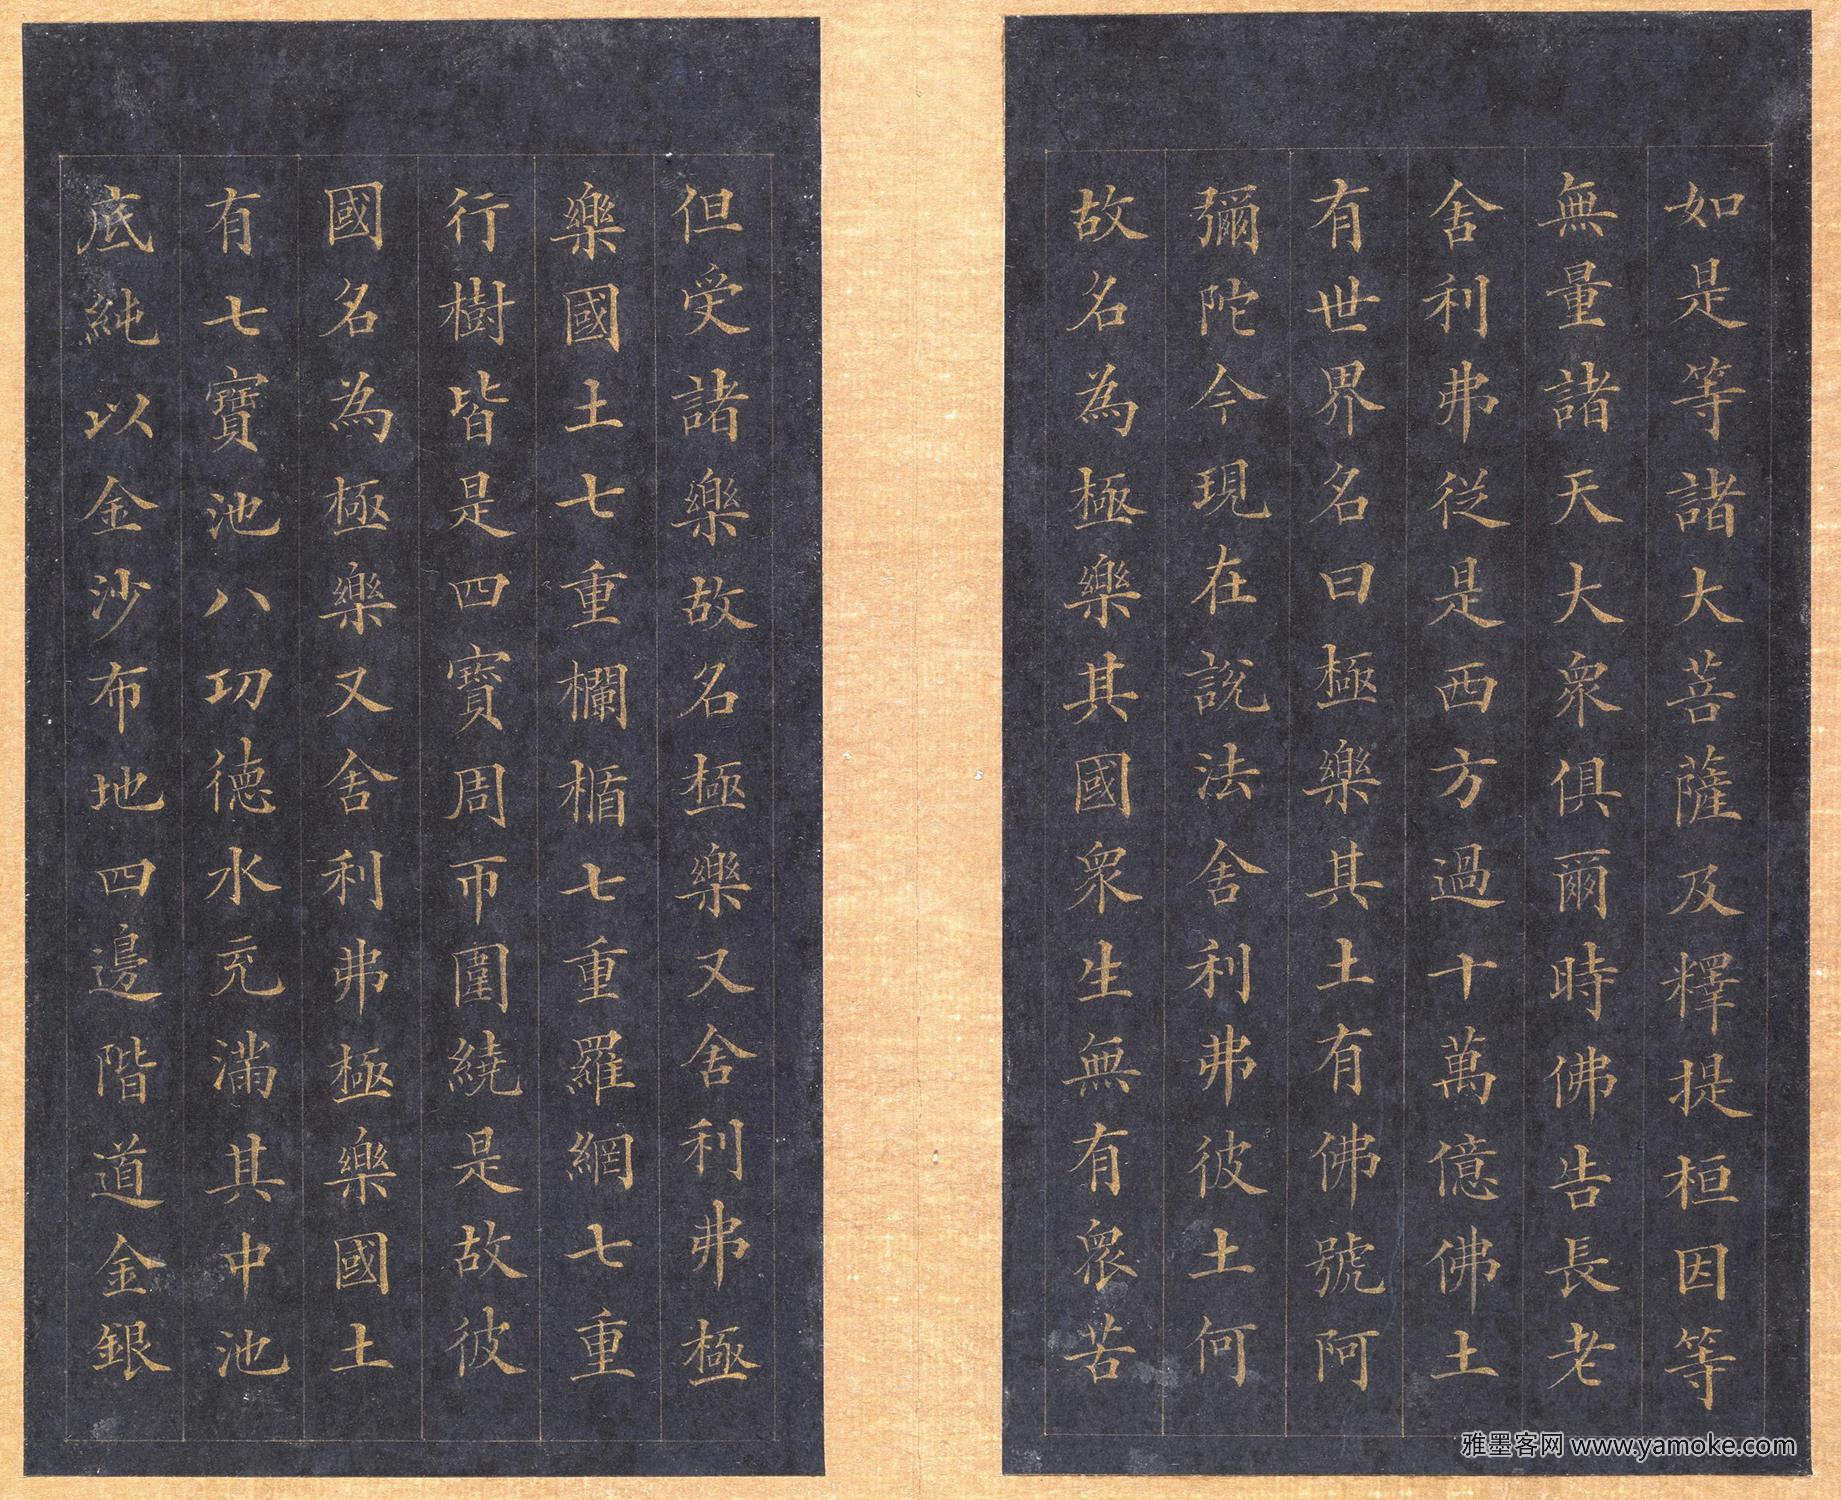 如是等諸大菩薩及釋提桓因等
無量諸天大衆俱爾時佛告長老
舍利弗從是西方過十萬億佛土
有世界名曰極樂其土有佛號阿
彌陀今現在說法舍利弗彼土何
故名為極樂其國衆生無有衆苦
但受諸樂故名極樂又舍利弗極
樂國土七重欄楯七重羅網七重
行樹皆是四寳周帀圍繞是故彼
國名為極樂又舍利弗極樂國土
有七寶池八功德水充滿其中池
底純以金沙布地四邊階道金銀
雅墨客网 www.yamoke.com